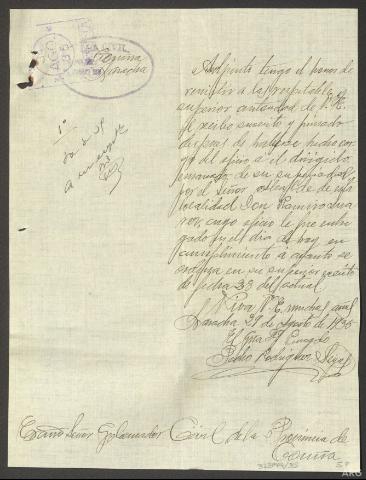 Coruña
Laracha
AGO
35
1º
Adjunto tengo el honor de
remitir a la respetable
superior autoridad de V. E.
el recibo suscrito y firmado
despues de haberse hecho car-
go del oficio a el dirigido
emanado de su
por el Señor Alcalde de esta
localidad Don Ramiro Sua-
rez, cuyo oficio le fue entre-
gado en el dia de hoy en
cumplimiento a cuanto se
ordena en su superior escrito
de fecha 23 del actual
Viva V. E. muchos años
Laracha 29 de Agosto de 1935
El Gtte
Pedro Rodriguez
Excmo Señor Gobernador Civil de la Provincia de
Coruña
ARG